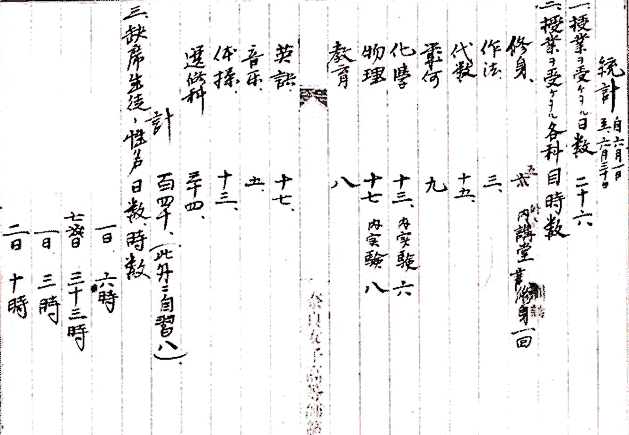 統計 自六月一日 至六月三十日
一、授業ヲ受ケタル日数 二十六
二、授業ヲ受ケタル各科目時数
修身、 五 内講堂修身一回
作法、 三、
代数 十五、
幾何 九
化學 十三、内実験 六
物理 十七 内実験 八
教育 八
奈良女子高等師範
英語 十七、
音楽 五、
体操 十三、
選修科 三十四、
計 百四十、(此外ニ自習八)、
三、缺席生徒ノ姓名日数、時数
一日 六時
七日 三十三時
一日 三時
二日 十時